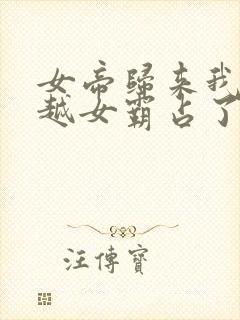 女帝歸来我
越女霸占了
汪傳寶